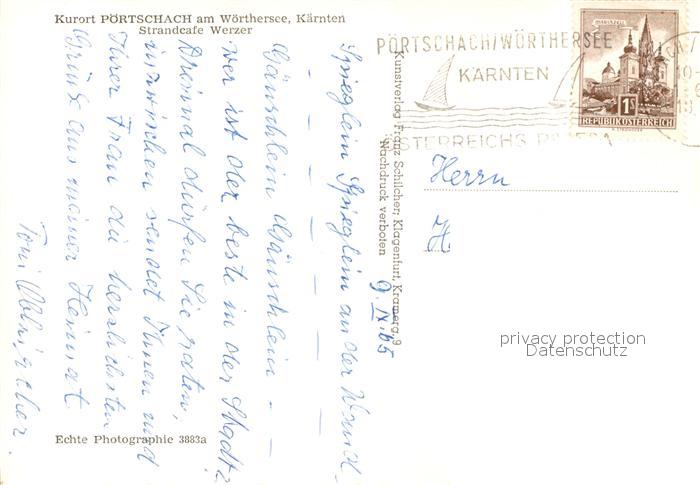 Kurort PÖRTSCHACH am Wörthersee, Kärnten
Strandcafe Werzer
Spieglein Spieglein an der Wand -
- - - - - -
Gänschlein Gänschlein - -
wer ist der beste in der Stadt?
Dreimal dürfen Sie raten,
inzwischen sendet Ihnen und
Ihrer Frau die herzlichsten
Grüße aus meiner Heimat
Toni
Echte Photographie 3883a
Kunstverlag Franz Schilcher, Klagenfurt, Kramerg. 9
Nachdruck verboten
9. IX. 65
PÖRTSCHACH/WÖRTHERSEE
KÄRNTEN
MARIAZELL
1S
REPUBLIK ÖSTERREICH
Herrn
H
privacy protection
Datenschutz